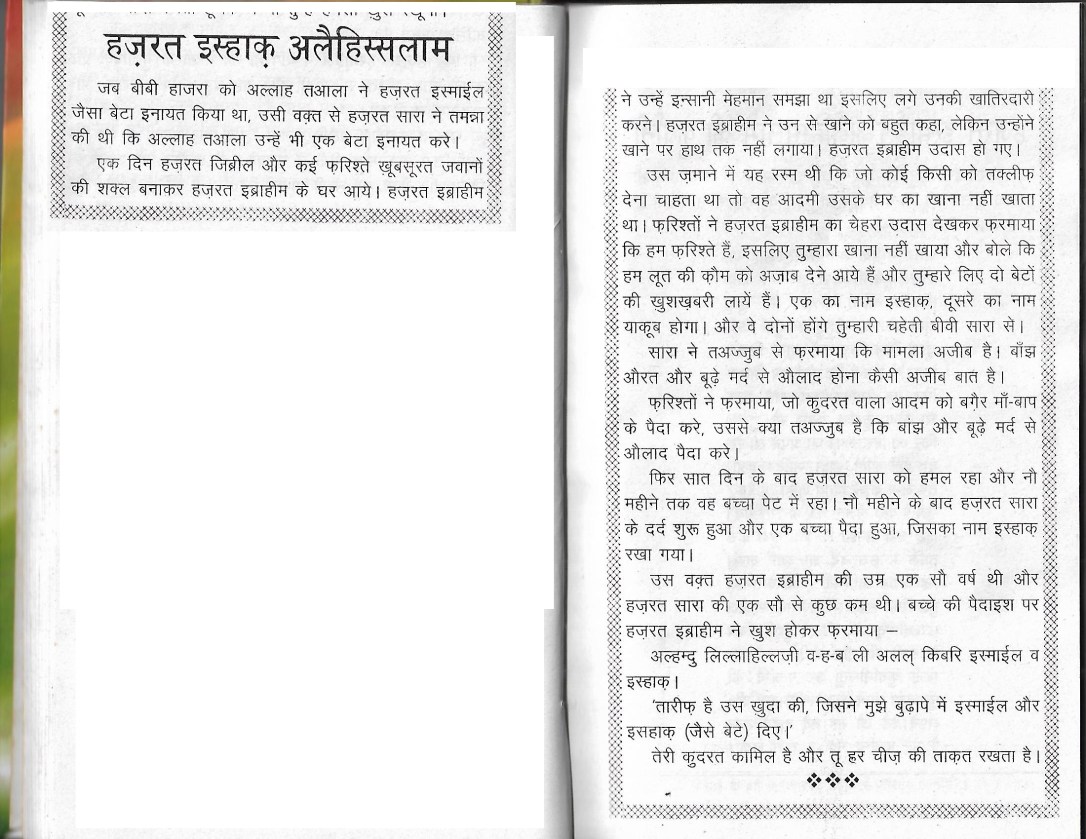 हज़रत इस्हाक़ अलैहिस्सलाम
जब बीबी हाजरा को अल्लाह तआला ने हज़रत इस्माईल
जैसा बेटा इनायत किया था, उसी वक़्त से हज़रत सारा ने तमन्ना
की थी कि अल्लाह तआला उन्हें भी एक बेटा इनायत करे।
एक दिन हज़रत जिब्रील और कई फ़रिश्ते ख़ूबसूरत जवानों
की शक्ल बनाकर हज़रत इब्राहीम के घर आये। हज़रत इब्राहीम
ने उन्हें इन्सानी मेहमान समझा था इसलिए लगे उनकी खातिरदारी
करने। हज़रत इब्राहीम ने उन से खाने को बहुत कहा, लेकिन उन्होंने
खाने पर हाथ तक नहीं लगाया। हज़रत इब्राहीम उदास हो गए।
उस ज़माने में यह रस्म थी कि जो कोई किसी को तक्लीफ़
देना चाहता था तो वह आदमी उसके घर का खाना नहीं खाता
था। फ़रिश्तों ने हज़रत इब्राहीम का चेहरा उदास देखकर फ़रमाया
कि हम फ़रिश्ते हैं, इसलिए तुम्हारा खाना नहीं खाया और बोले कि
हम लूत की क़ौम को अज़ाब देने आये हैं और तुम्हारे लिए दो बेटों
की ख़ुशख़बरी लायें हैं। एक का नाम इस्हाक़, दूसरे का नाम
याकूब होगा। और वे दोनों होंगे तुम्हारी चहेती बीवी सारा से।
सारा ने तअज्जुब से फ़रमाया कि मामला अजीब है। बाँझ
औरत और बूढ़े मर्द से औलाद होना कैसी अजीब बात है।
फ़रिश्तों ने फ़रमाया, जो कुदरत वाला आदम को बग़ैर माँ-बाप
के पैदा करे, उससे क्या तअज्जुब है कि बांझ और बूढ़े मर्द से
औलाद पैदा करे।
फिर सात दिन के बाद हज़रत सारा को हमल रहा और नौ
महीने तक वह बच्चा पेट में रहा। नौ महीने के बाद हज़रत सारा
के दर्द शुरू हुआ और एक बच्चा पैदा हुआ, जिसका नाम इस्हाक़
रखा गया।
उस वक़्त हज़रत इब्राहीम की उम्र एक सौ वर्ष थी और
हज़रत सारा की एक सौ से कुछ कम थी। बच्चे की पैदाइश पर
हज़रत इब्राहीम ने ख़ुश होकर फ़रमाया –
अल्हम्दु लिल्लाहिल्लज़ी व-ह-ब ली अलल् किबरि इस्माईल व
इस्हाक़।
'तारीफ़ है उस ख़ुदा की, जिसने मुझे बुढ़ापे में इस्माईल और
इसहाक़ (जैसे बेटे) दिए।'
तेरी कुदरत कामिल है और तू हर चीज़ की ताक़त रखता है।